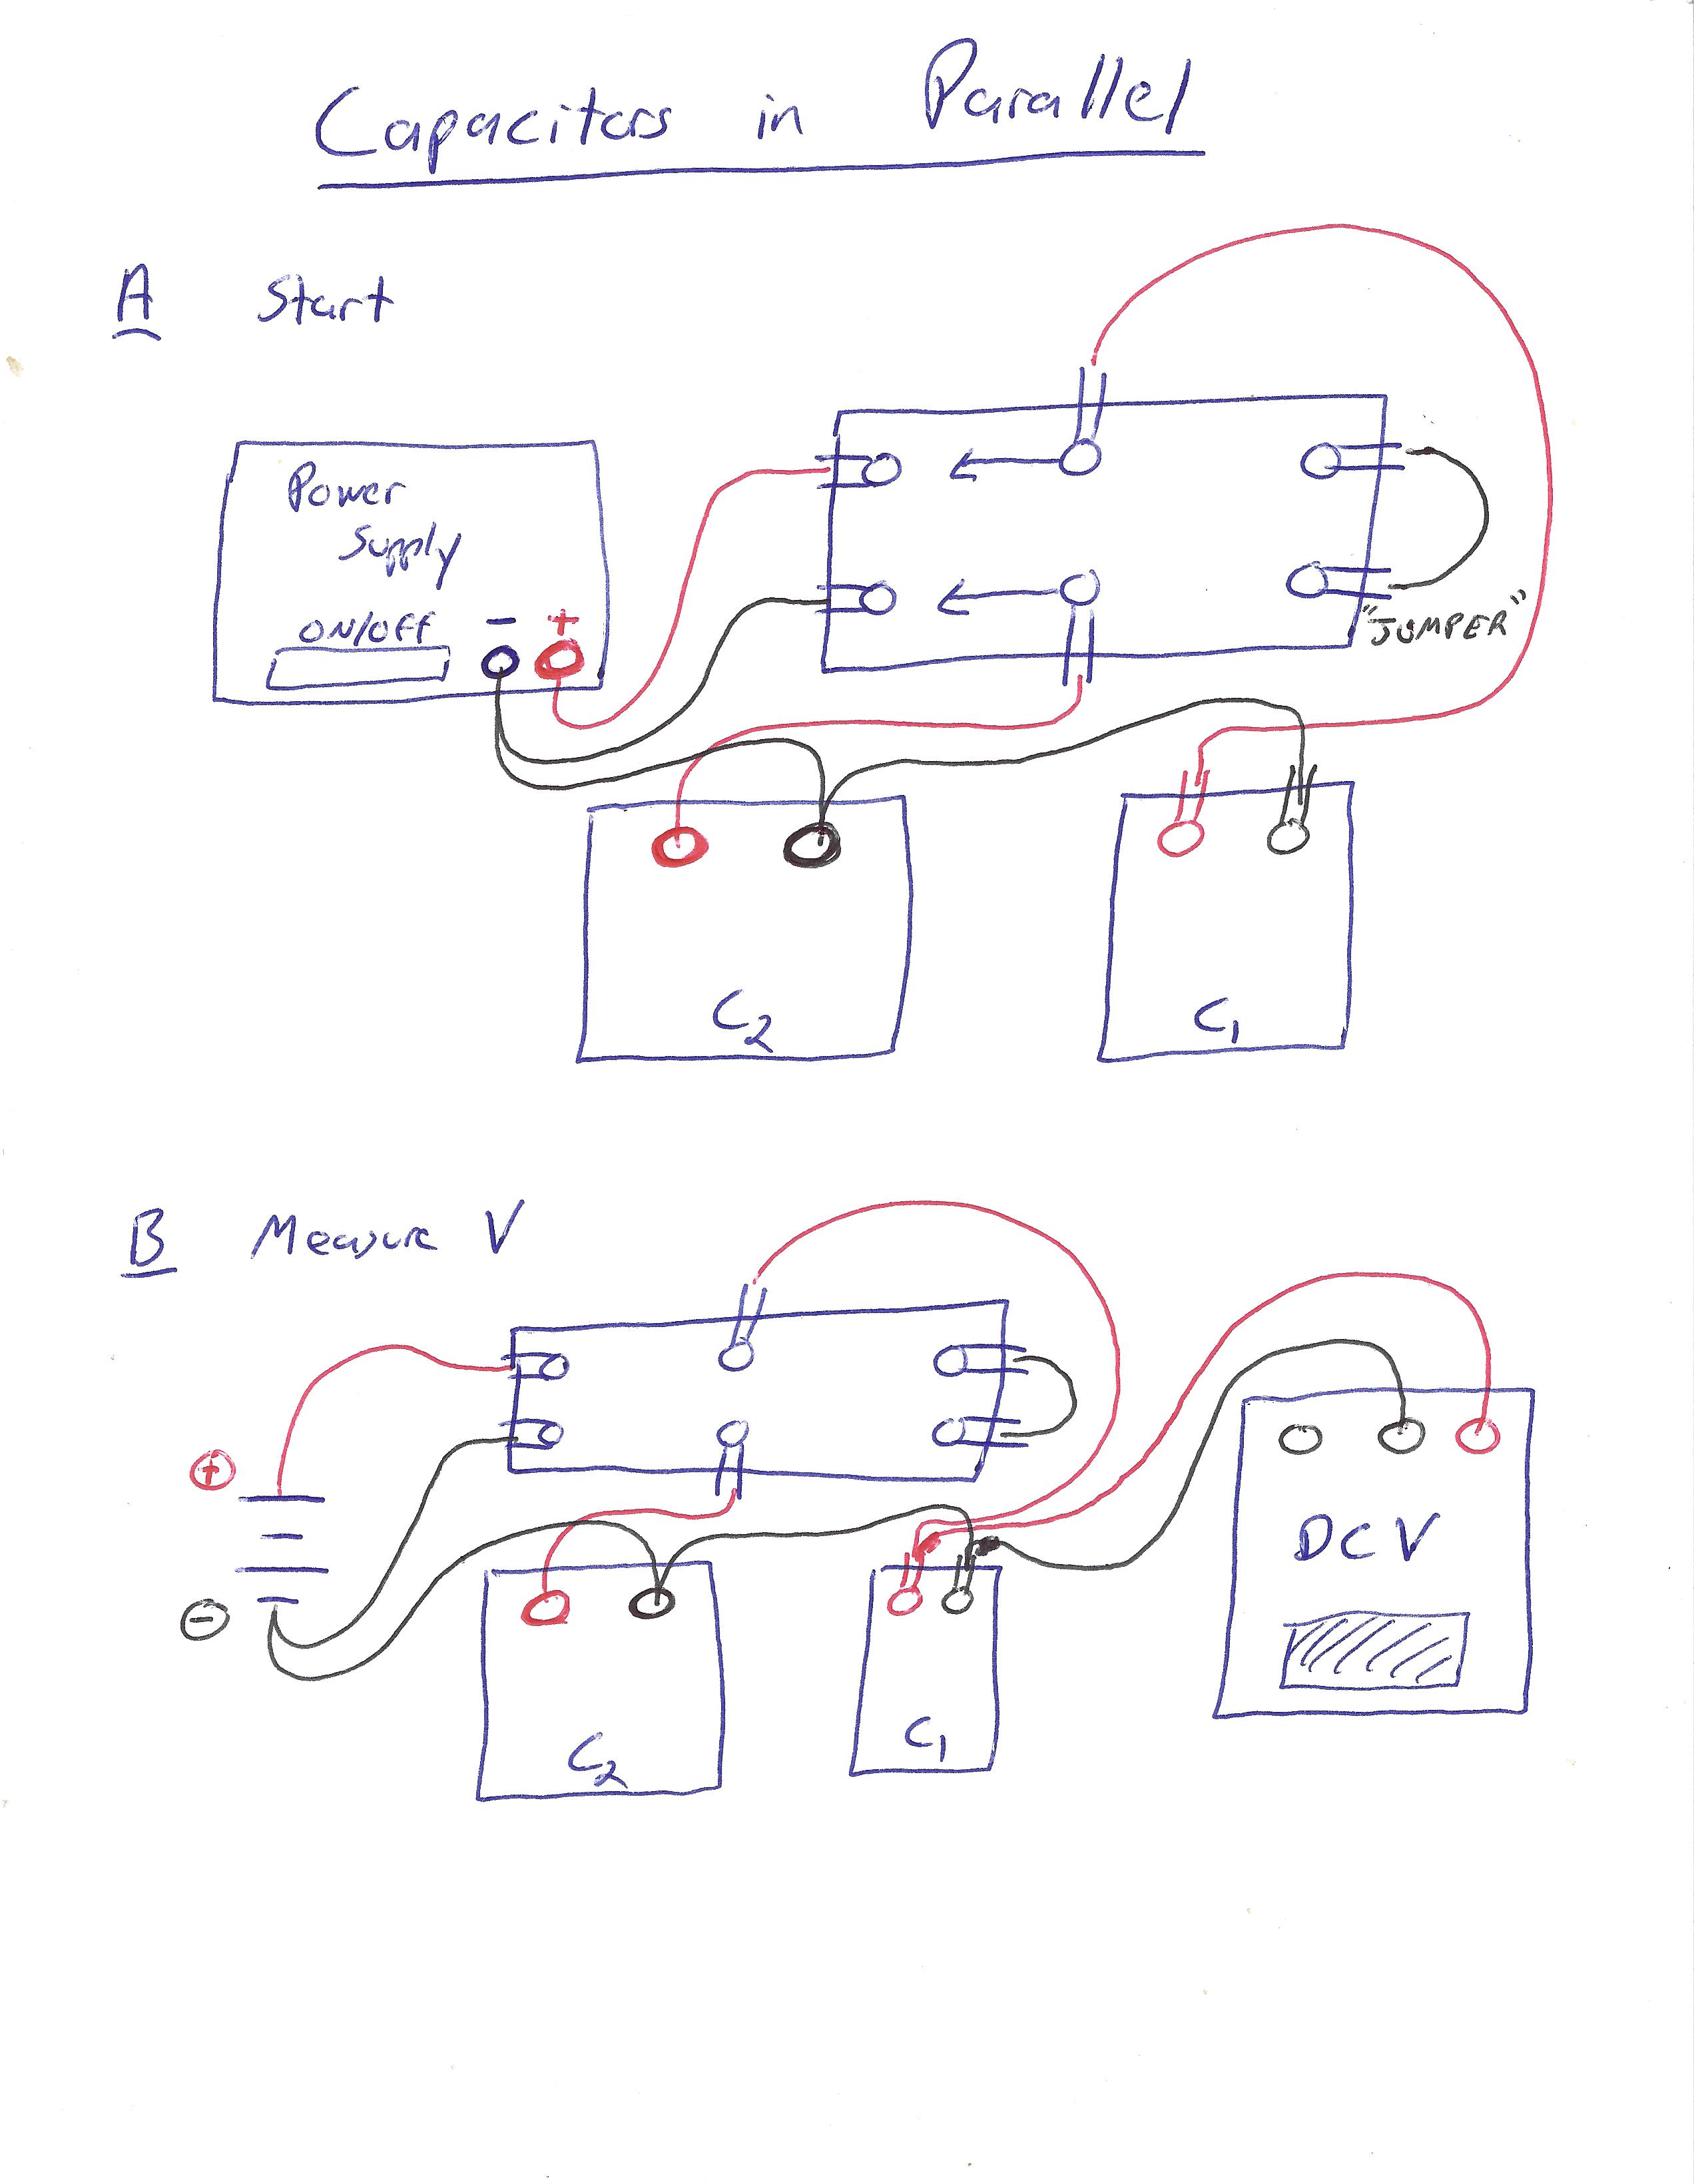 Capacitors in Parallel
A Start
Power
Supply
ON/OFF
- +
"JUMPER"
C2
C1
B Measure V
+
-
DCV
C2
C1